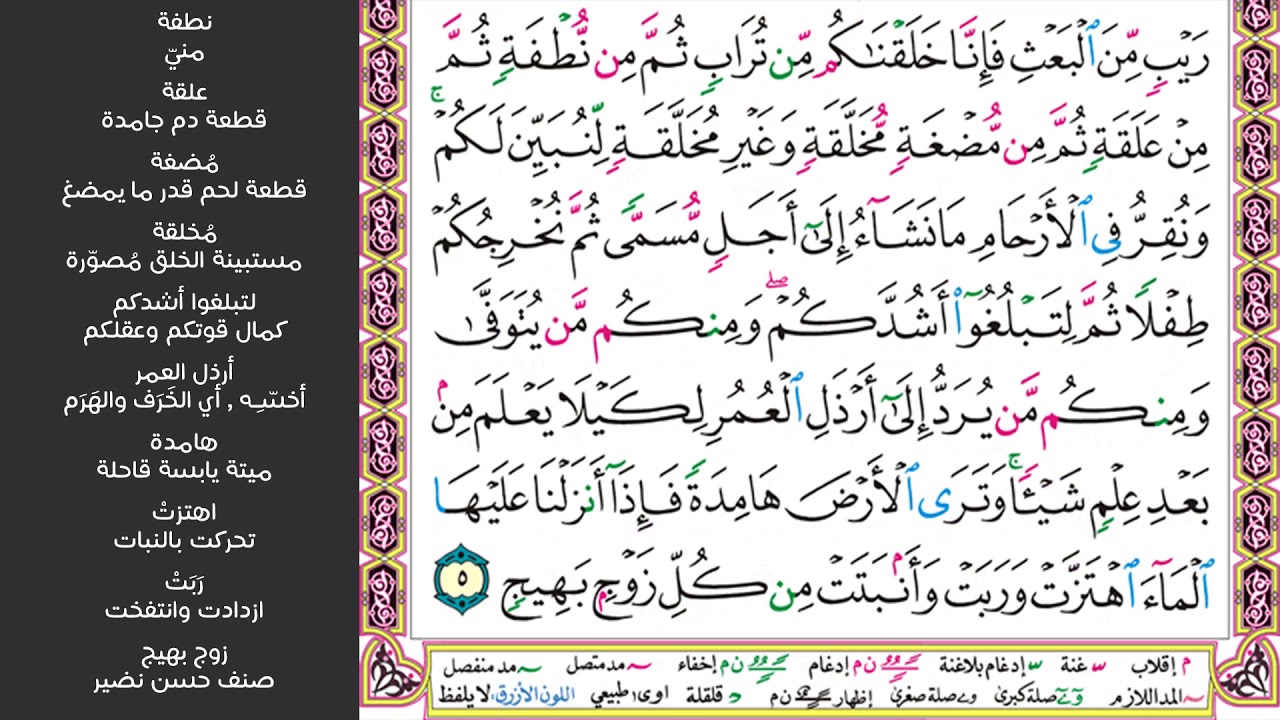 رَيْبٍ مِّنَ ٱلْبَعْثِ فَإِنَّا خَلَقْنَٰكُم مِّن تُرَابٍ ثُمَّ مِن نُّطْفَةٍ ثُمَّ
مِنْ عَلَقَةٍ ثُمَّ مِن مُّضْغَةٍ مُّخَلَّقَةٍ وَغَيْرِ مُخَلَّقَةٍ لِّنُبَيِّنَ لَكُمْ ۚ
وَنُقِرُّ فِى ٱلْأَرْحَامِ مَا نَشَآءُ إِلَىٰٓ أَجَلٍ مُّسَمًّى ثُمَّ نُخْرِجُكُمْ
طِفْلًا ثُمَّ لِتَبْلُغُوٓا۟ أَشُدَّكُمْ ۖ وَمِنكُم مَّن يُتَوَفَّىٰ
وَمِنكُم مَّن يُرَدُّ إِلَىٰٓ أَرْذَلِ ٱلْعُمُرِ لِكَيْلَا يَعْلَمَ مِنۢ
بَعْدِ عِلْمٍ شَيْـًٔا ۚ وَتَرَى ٱلْأَرْضَ هَامِدَةً فَإِذَآ أَنزَلْنَا عَلَيْهَا
ٱلْمَآءَ ٱهْتَزَّتْ وَرَبَتْ وَأَنۢبَتَتْ مِن كُلِّ زَوْجٍۭ بَهِيجٍ ٥
م إقلاب ّ غنة ّ إدغام بلاغنة ن م إدغام ن م إخفاء ~ مد متصل ~ مد منفصل
~ المد اللازم و ے صلة كبرى و ے صلة صغرى إظهار ن م د قلقلة اوى١ طبيعي اللون الأزرق: لا يلفظ
نطفة
منيّ
علقة
قطعة دم جامدة
مُضغة
قطعة لحم قدر ما يمضغ
مُخلقة
مستبينة الخلق مُصوّرة
لتبلغوا أشدكم
كمال قوتكم وعقلكم
أرذل العمر
أخسّـِه , أي الخَرَف والهَرَم
هامدة
ميتة يابسة قاحلة
اهتزتْ
تحركت بالنبات
رَبَتْ
ازدادت وانتفخت
زوج بهيج
صنف حسن نضير